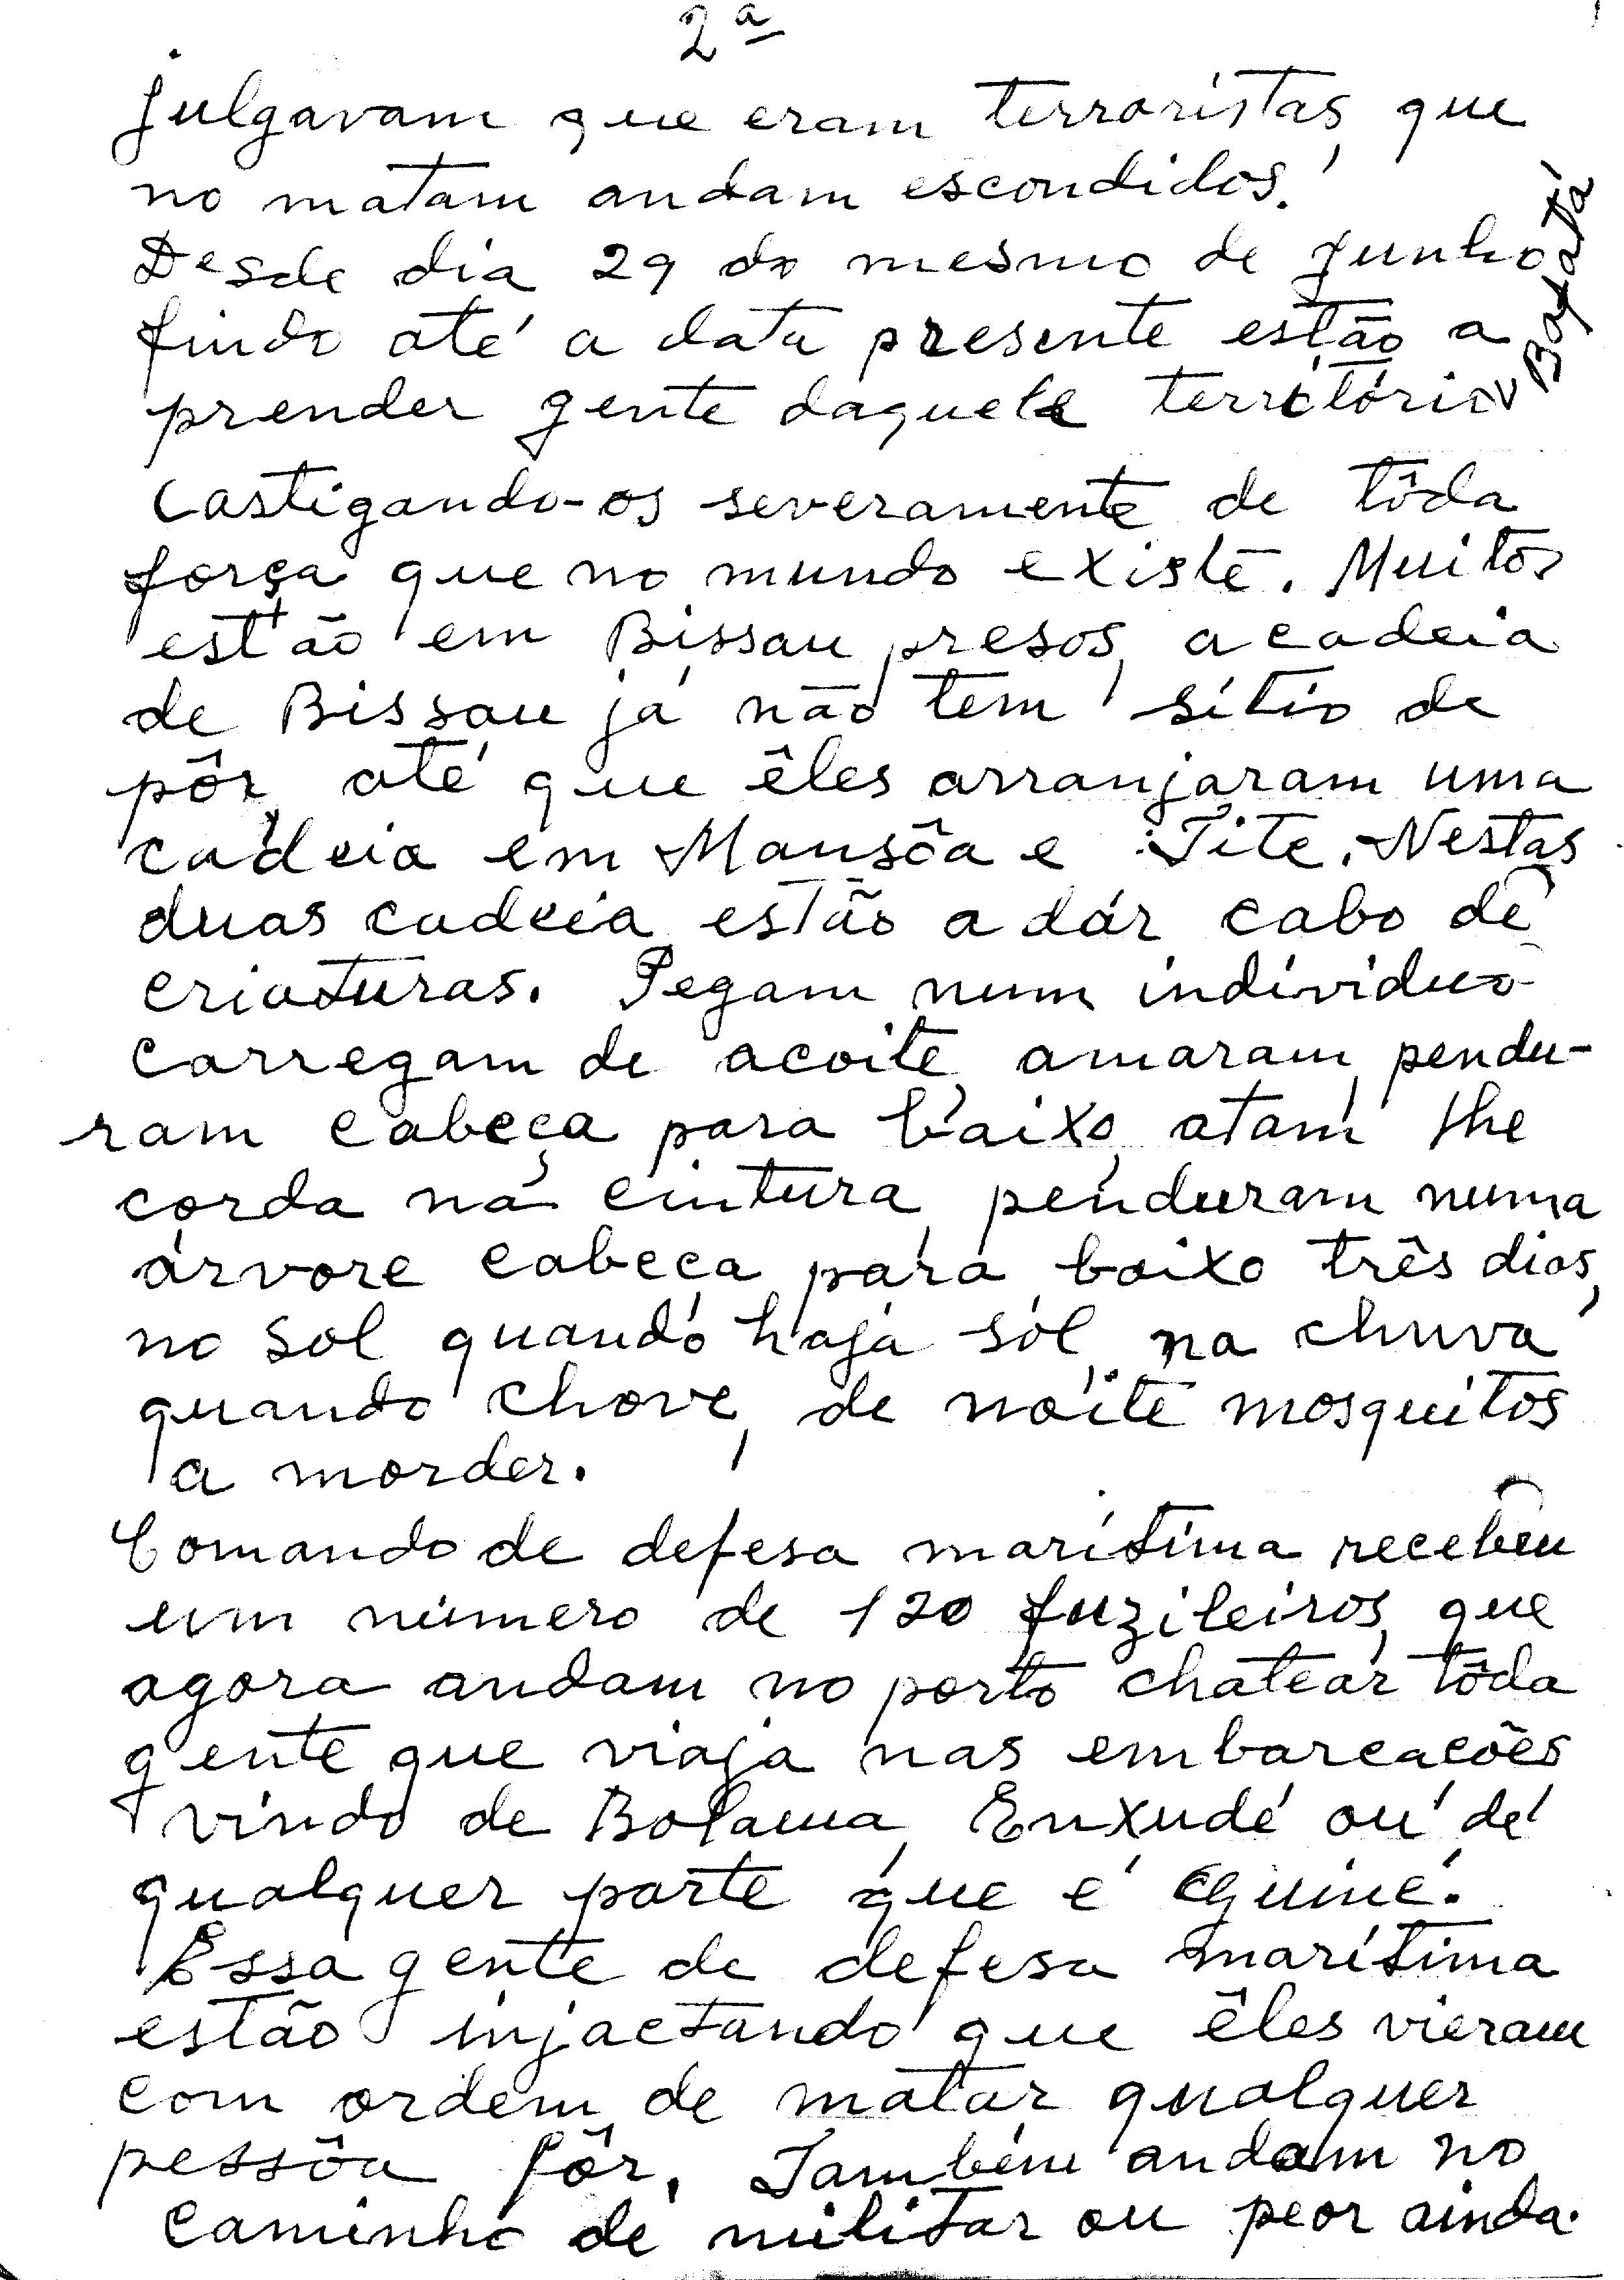 2ª
julgavam que eram terroristas, que
no matam andam escondidos.
Desde dia 29 do mesmo de Junho
findo até a data presente estão a
prender gente daquele território
Castigando-os severamente de tôda
força que no mundo existe. Muitos
estão em Bissau presos, a cadeia
de Bissau já não tem sítio de
pôr, até que êles arranjaram uma
cadeia em Mansôa e Tite. Nestas
duas cadeia estão a dár cabo de
criaturas. Pegam num indíviduo
carregam de acoite, amaram, pendu-
ram cabeça para baixo, atam lhe
corda na cintura, penduram numa
árvore cabeça para baixo três dias,
no sol quando haja sol, na chuva
quando chove, de noite mosquitos
a morder.
Comando de defesa marítima recebeu
um número de 120 fuzileiros, que
agora andam no porto chatear tôda
gente que viaja nas embarcacões
vindo de Bolama, Enxudé ou de
qualquer parte que é Guiné.
Essa gente de defesa marítima
estão injactando que êles vieram
com ordem de matar qualquer
pessôa fôr. Também andam no
caminho de militar ou peor ainda.